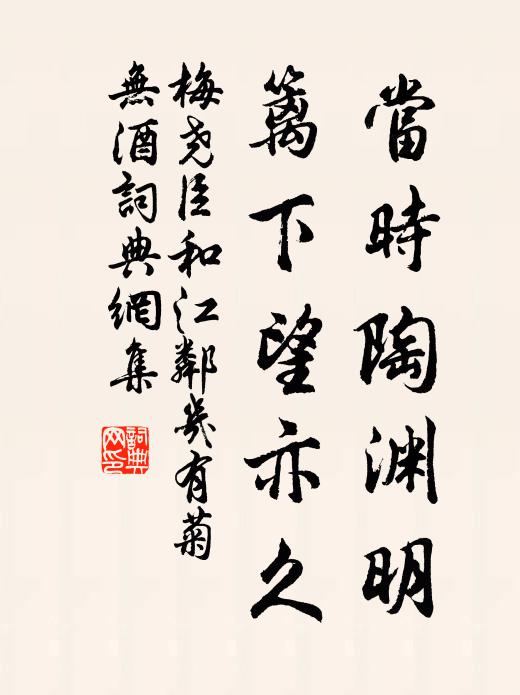 當時陶渊明
籬下望亦久
梅尧臣和江鄰幾有菊
無酒詞典網集
詞典
网印